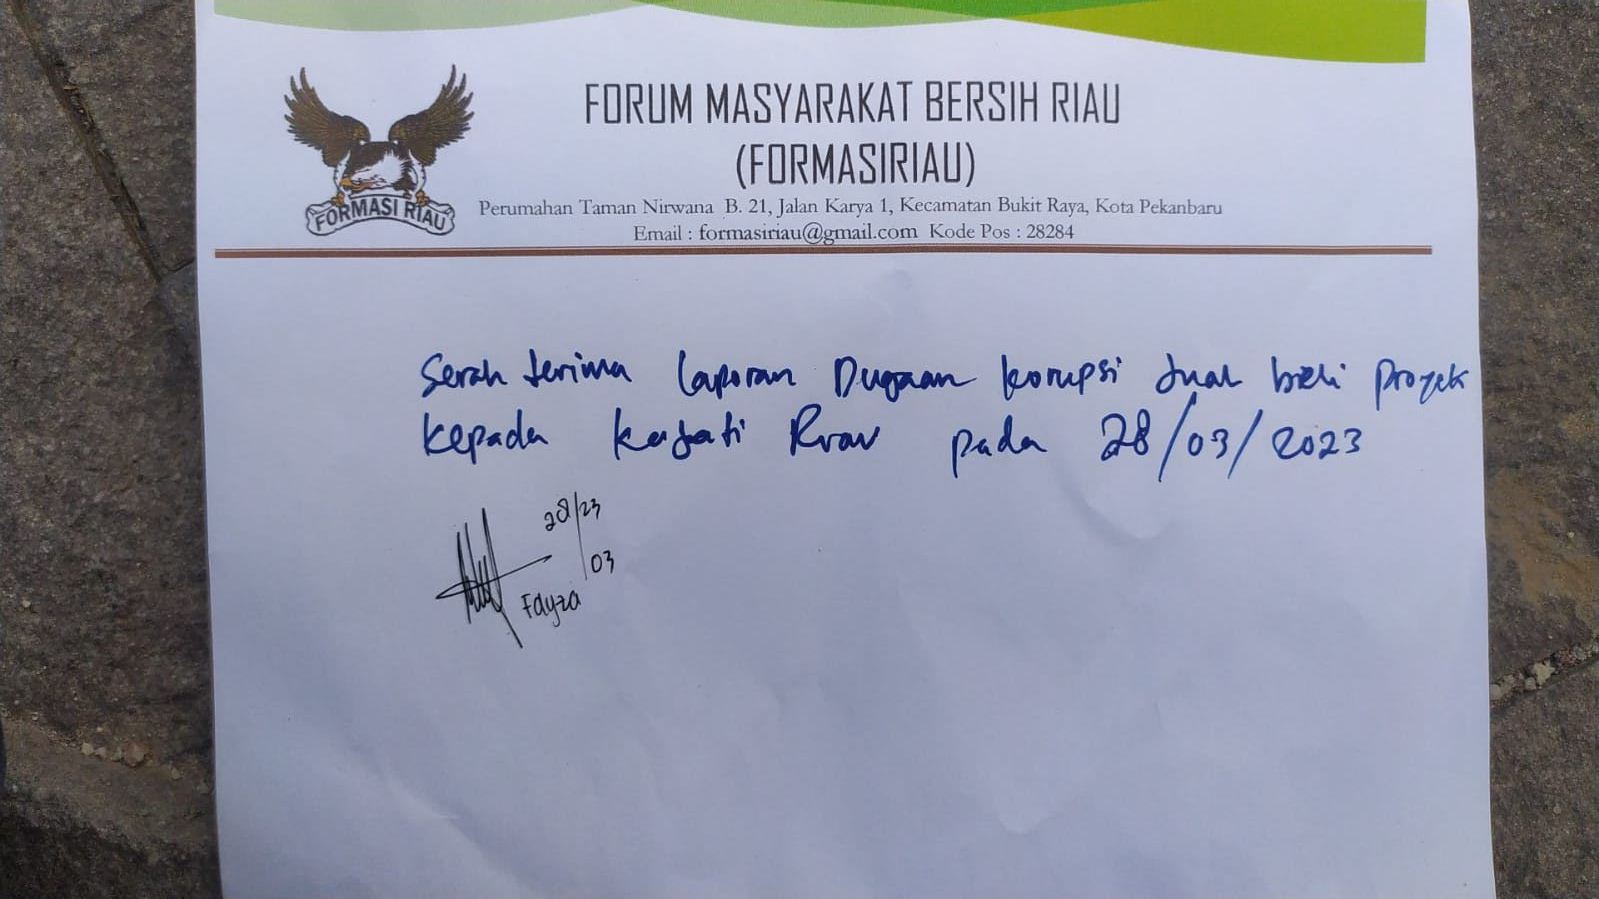 FORMASI RIAU
FORUM MASYARAKAT BERSIH RIAU
(FORMASIRIAU)
Perumahan Taman Nirwana B. 21, Jalan Karya 1, Kecamatan Bukit Raya, Kota Pekanbaru
Email : formasiriau@gmail.com Kode Pos : 28284
Serah terima laporan Dugaan korupsi Jual beli proyek
kepada Kajati Riau pada 28/03/2023
28/23
03
Fayza